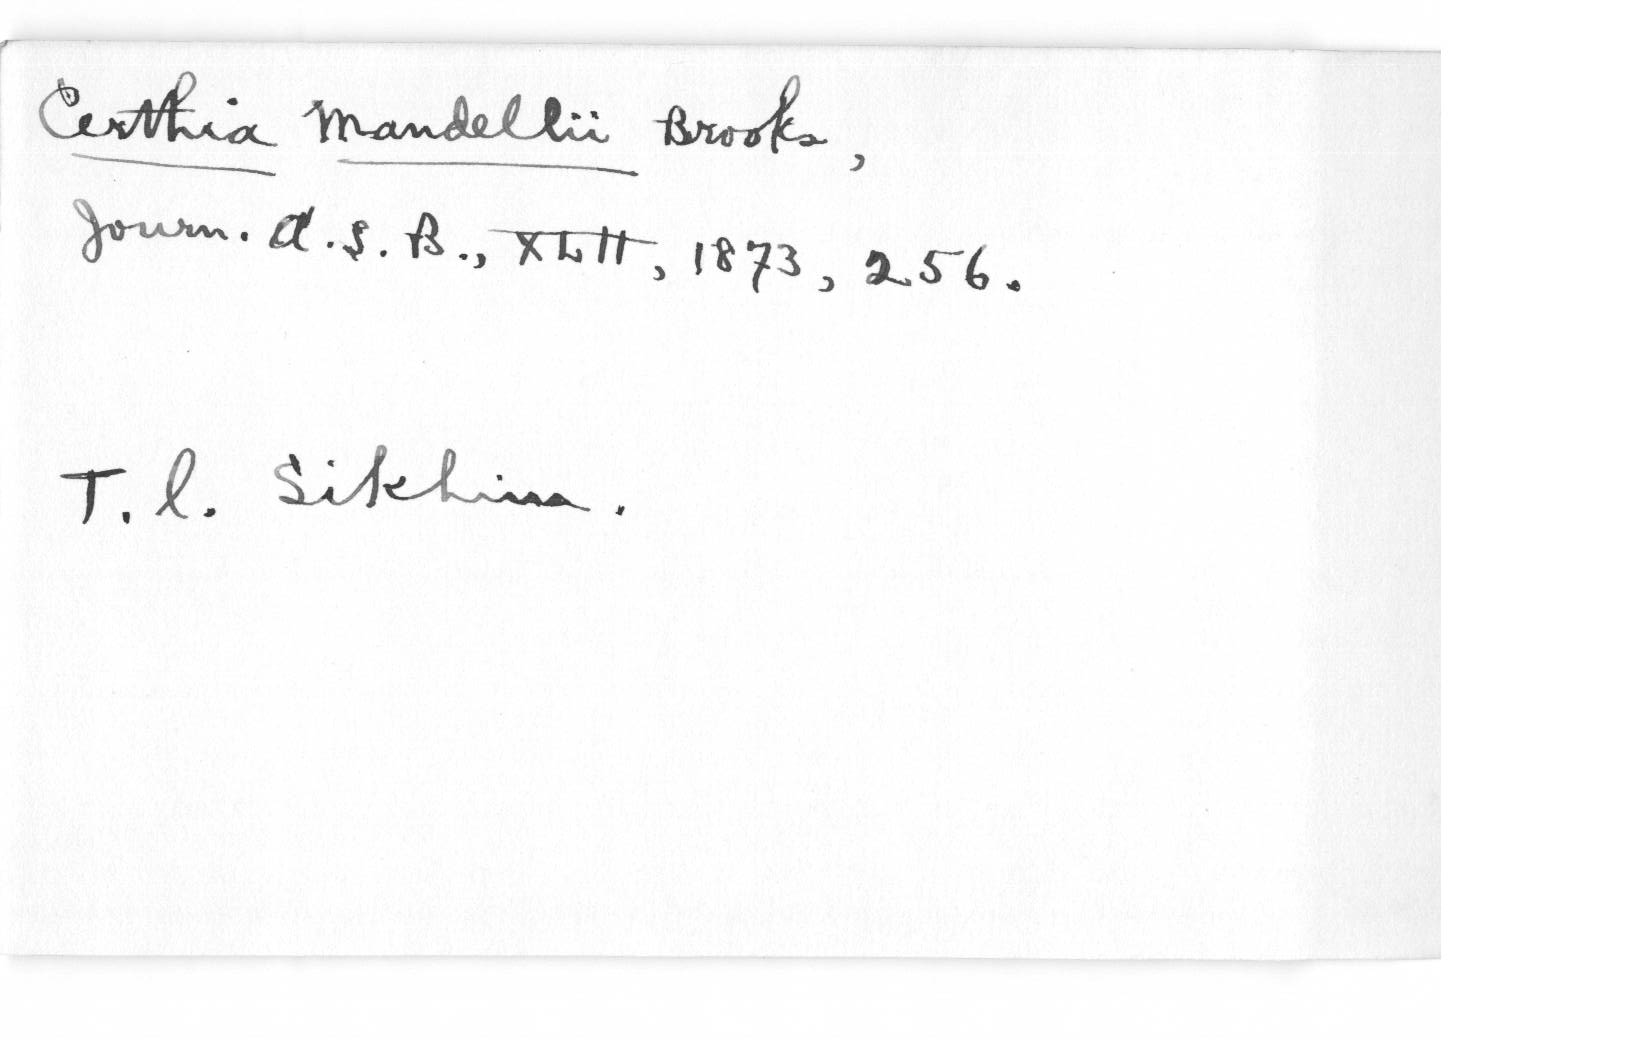 Certhia Mandellii Brooks,
Journ. A.S.B., XLII, 1873, 256.
T. l. Sikhim.